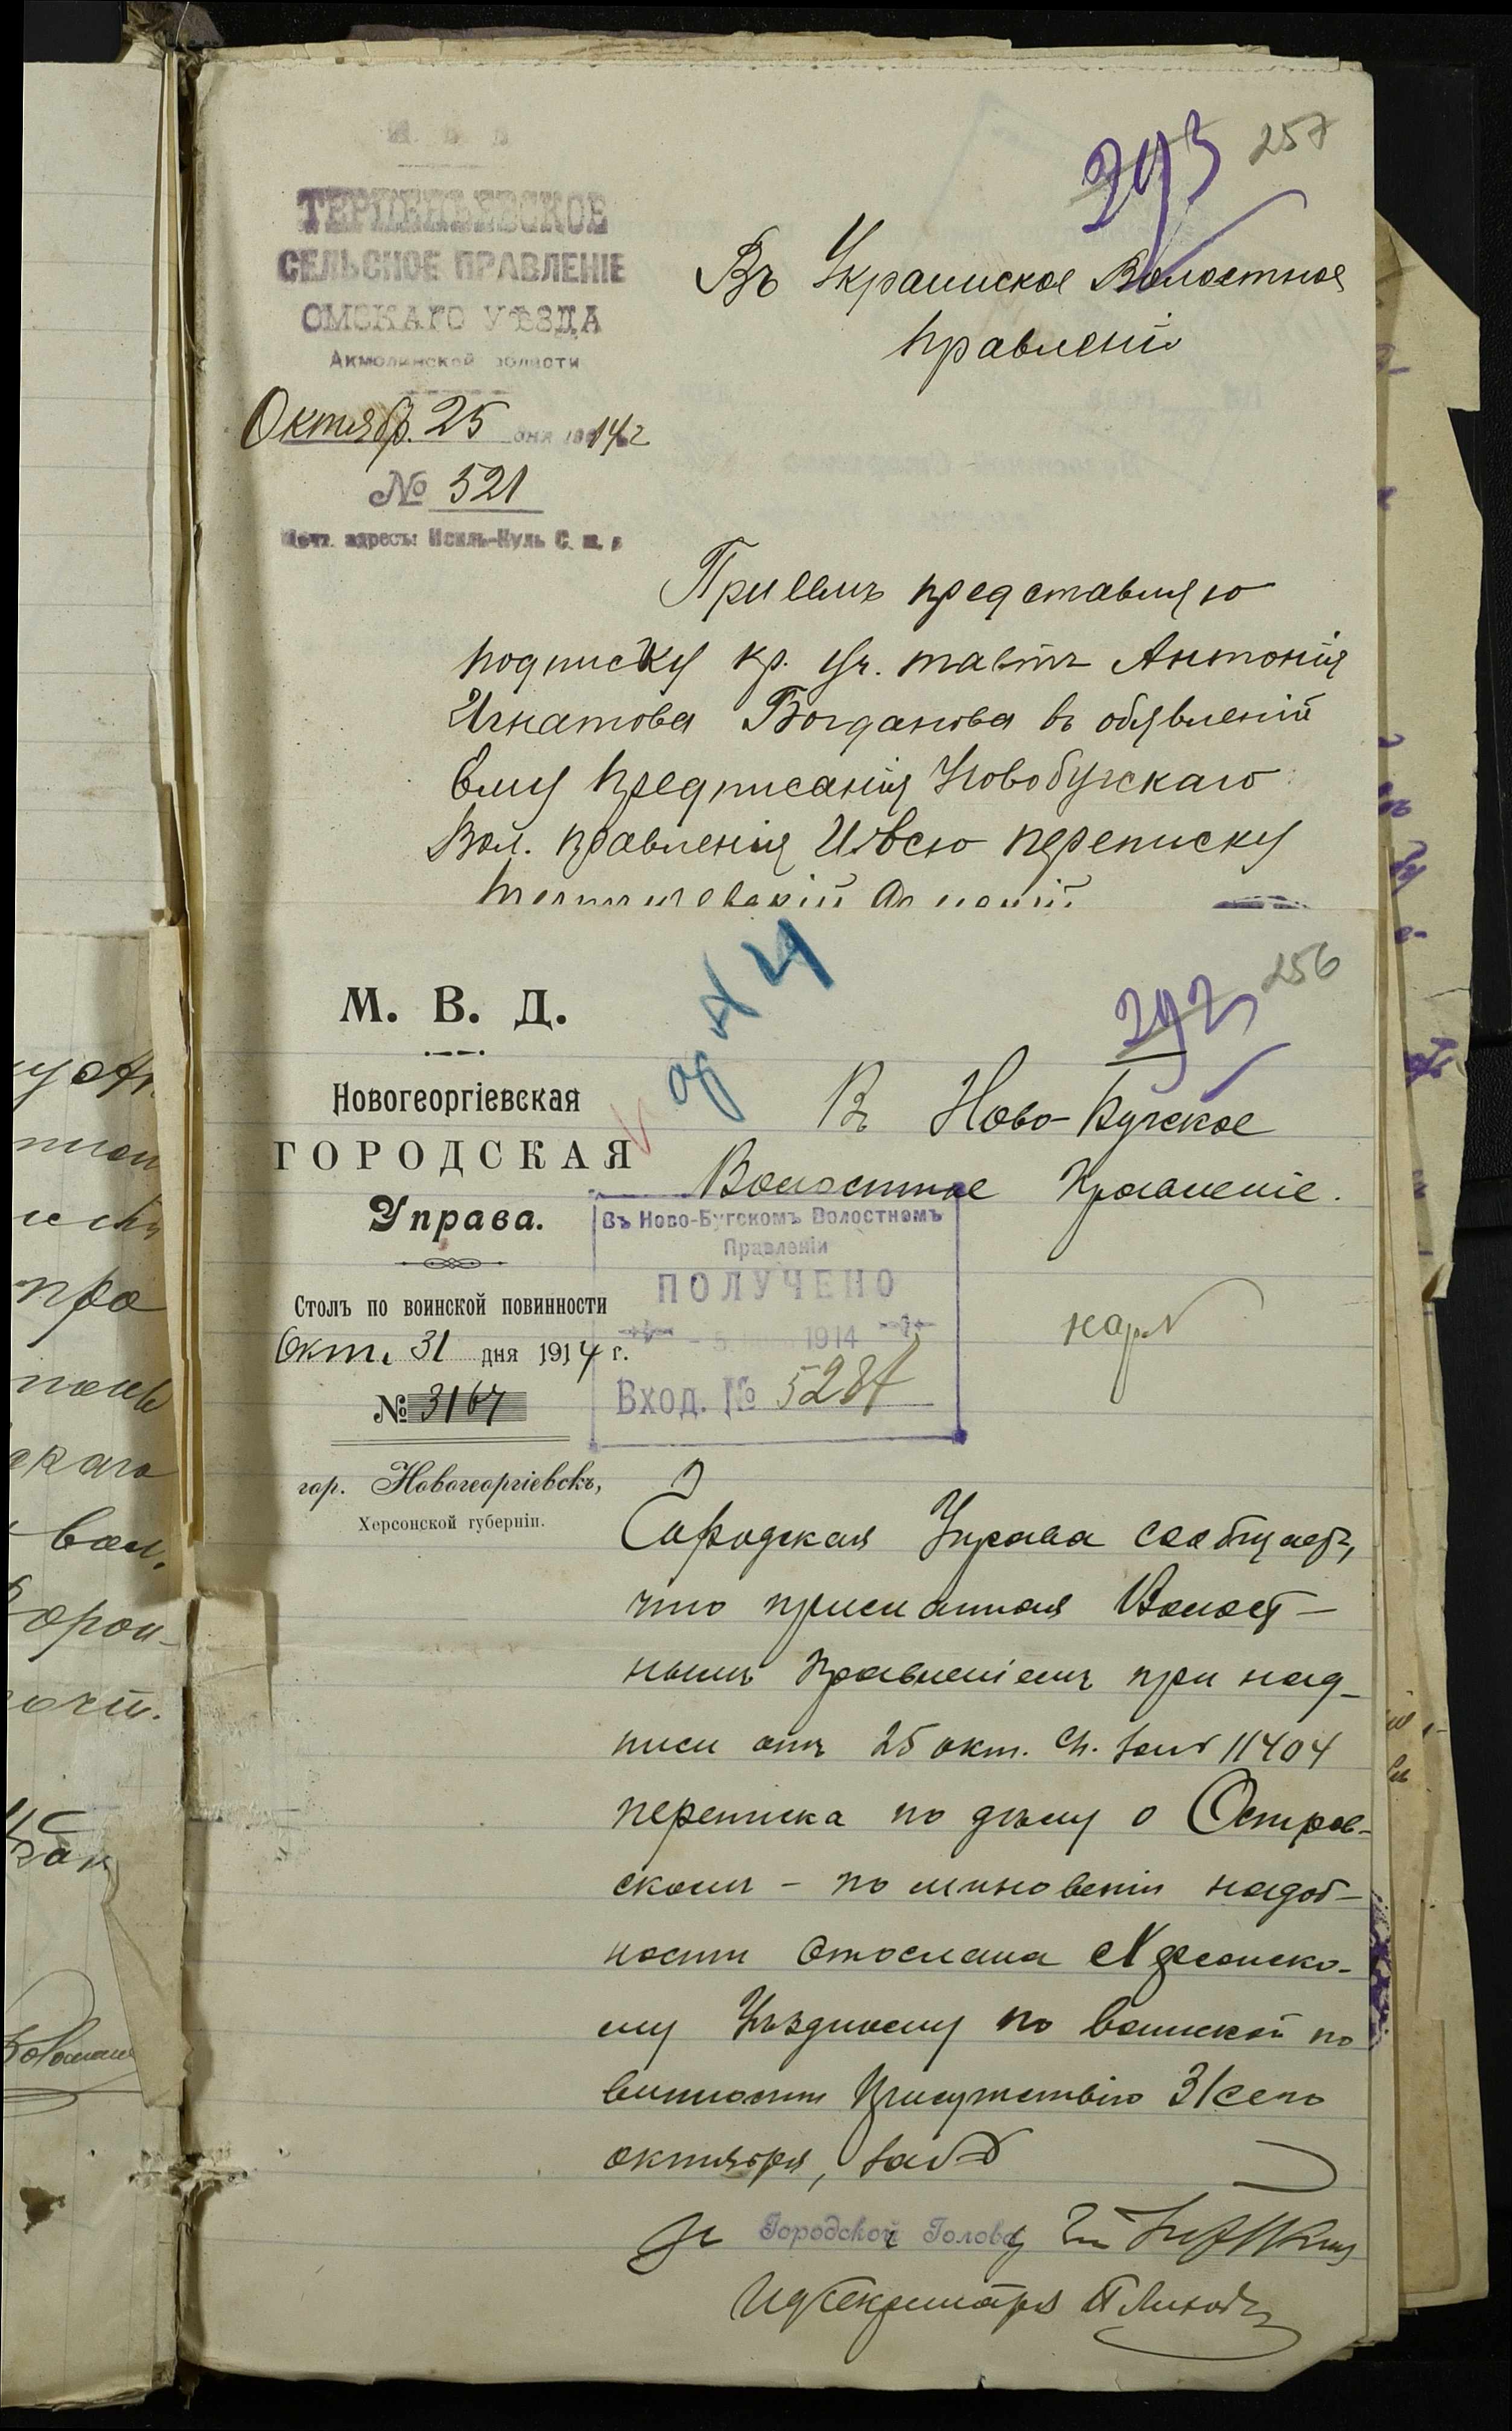 293 257
М. В. Д.
ТЕРПЕНЬЕВСКОЕ
СЕЛЬСКОЕ ПРАВЛЕНІЕ
ОМСКАГО УѢЗДА
Акмолинской области
Октябр. 25 дня 1914 г
№ 521
Почт. адресъ: Исиль-Куль С. ж. д
Въ Украинское Волостное
Правленіе
При семъ представляю
подписку кр. Антонія
Игнатова Богданова въ обявленій
ему предписанія Новобугскаго
Вол. Правленія И всю переписку
292 256
М. В. Д.
Новогеоргіевская
ГОРОДСКАЯ
Управа.
Столъ по воинской повинности
Окт. 31 дня 1914 г.
№ 3167
гор. Новогеоргіевскъ,
Херсонской губерніи.
Въ Ново-Бугское
Волостное Правленіе.
Въ Ново-Бугскомъ Волостномъ
Правленіи
ПОЛУЧЕНО
5 1914
Вход. № 5287
Городская Управа сообщаетъ,
что присланная Волост-
нымъ Правленіемъ при над-
писи отъ 25 окт. с. г. за № 11404
переписка по дѣлу о Остров-
скомъ - по минованіи надоб-
ности отослана Херсонско-
му Уѣздному по воинской по
винности Присутствію 31 сего
октября, за №
Городской Голова
Ид Секретаря